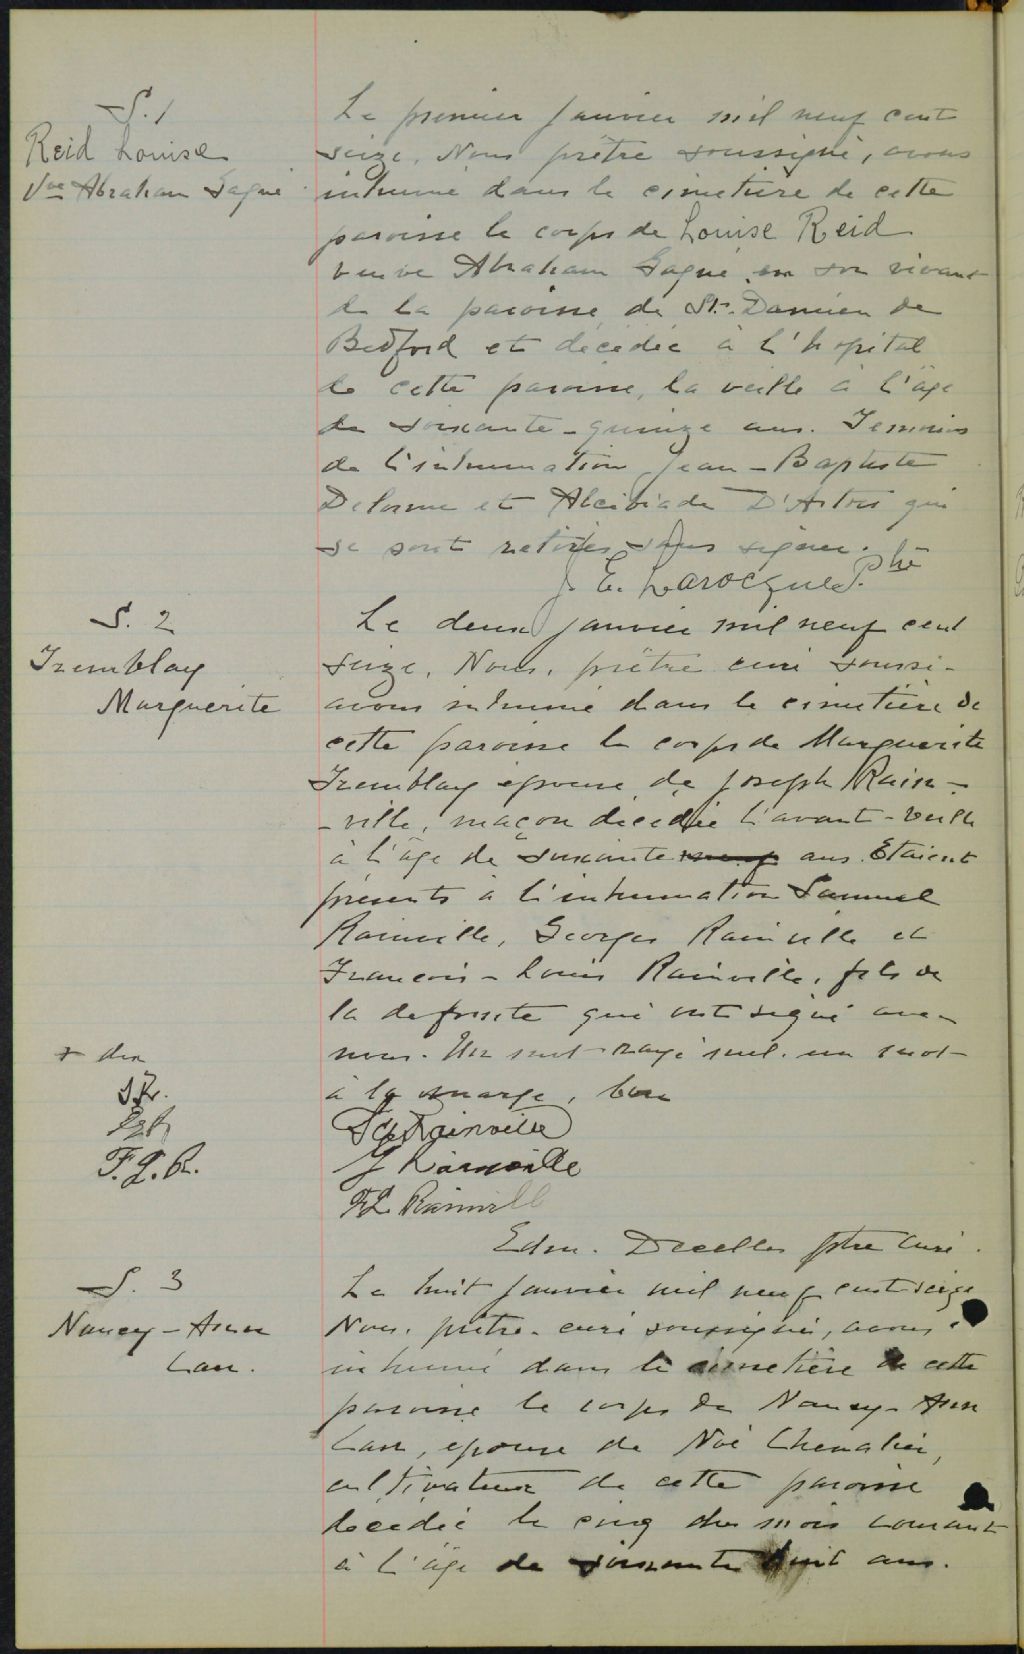 S. 1
Reid Louise
Vve Abraham Gagné
Le premier janvier mil neuf cent
seize, Nous prêtre soussigné, avons
inhumé dans le cimetière de cette
paroisse le corps de Louise Reid
veuve Abraham Gagné en son vivant
de la paroisse de St. Damien de
Bedford et décédée à l'hopital
de cette paroisse, la veille à l'âge
de soixante-quinze ans. Temoins
de l'inhumation Jean-Baptiste
Delorme et Alcibiade D'Artois qui
se sont retirés sans signer.
J. E. Larocque Ptre
S. 2
Tremblay
Marguerite
Le deux janvier mil neuf cent
seize, Nous, prêtre curé soussi-
avons inhumé dans le cimetière de
cette paroisse le corps de Marguerite
Tremblay épouse de Joseph Rain-
-ville, maçon décédée l'avant-veille
à l'âge de soixante neuf ans. Etaient
présents à l'inhumation Samuel
Rainville, Georges Rainville et
François-Louis Rainville, fils de
la defunte qui ont signé avec
nous. Un mot rayé nul. un mot
à la marge, bon
+ dix
S.R.
F.L.R.
Rainville
G Rainville
FL Rainville
Edm. Decelles ptre curé.
S. 3
Nancy-Ann
Carr.
Le huit janvier mil neuf cent seize
Nous, prêtre-curé soussigné, avons
inhumé dans le cimetière de cette
paroisse le corps de Nancy-Ann
Carr, epouse de Noé Chevalier,
cultivateur de cette paroisse
décédée le cinq du mois courant
à l'âge de soixante huit ans.